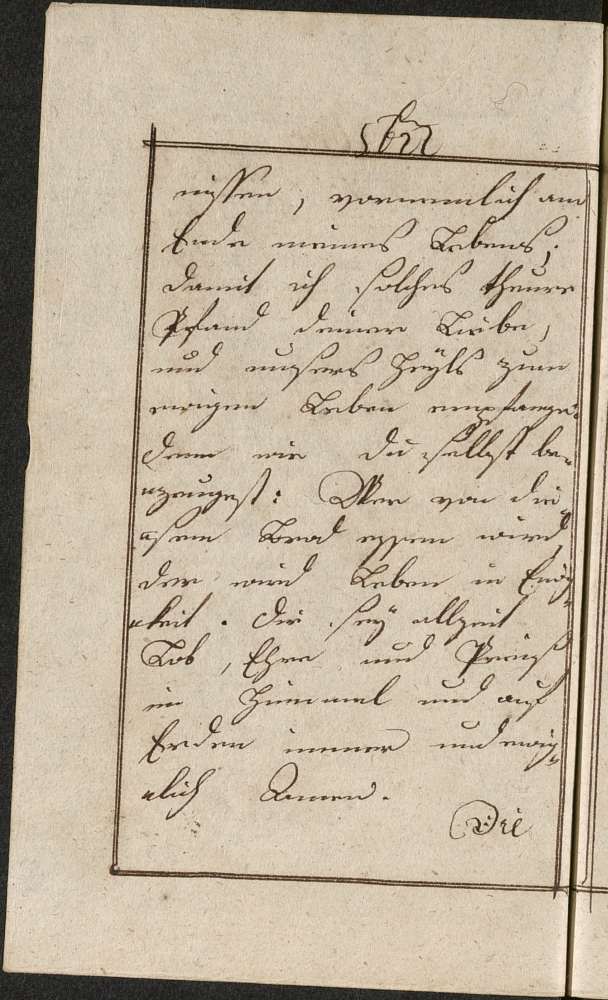 nissen, vornemlich am
Ende meines Lebens,
damit ich solches theure
Pfand deiner Liebe,
und unsers Heyls zum
ewigen Leben empfange.
denn wie du selbst be-
zeugest: Wer von die
sem Brod essen wird,
der wird Leben in Ewig-
keit. Dir sey allzeit
Lob, Ehre und Preiß
im Himmel und auf
Erden immer und ewig-
lich Amen.
Die